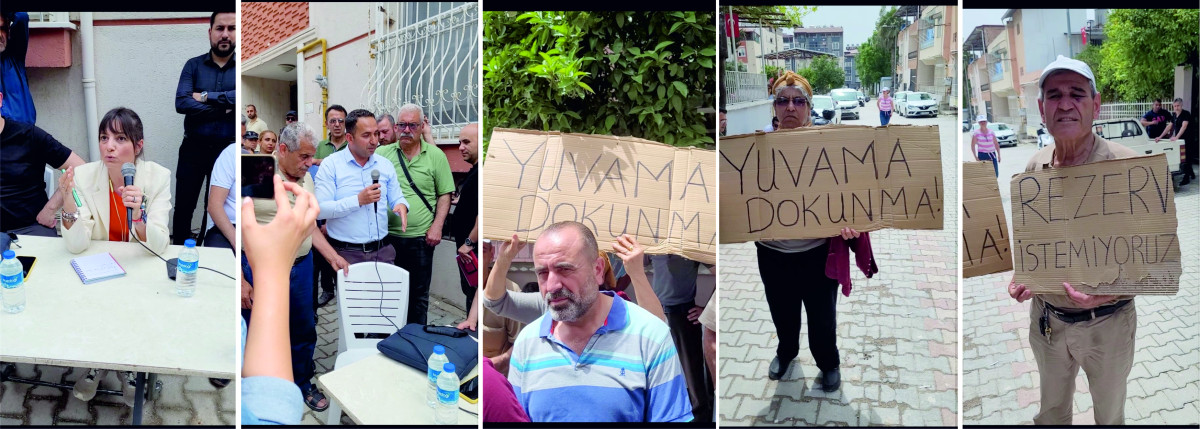 YUVAMA
DOKUNMA
YUVAMA
DOKUNMA!
A!
REZERV
İSTEMİYORUZ